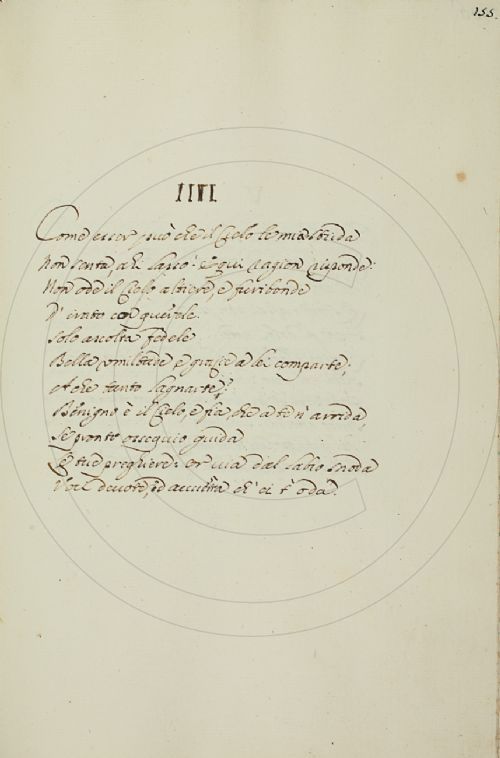 155.
IIVI.
Come esser può che il Cielo le mie strida
Non senta, ahi lasso! E qui ragion risponde:
Non ode il Cielo altiere, e furibonde
D' irato cor querele.
Solo ascolta fedele
Bella umiltade e grazie a lei comparte;
A che tanto lagnarte?
Benigno è il Cielo, e fia, che a te si arrida,
Se pronto ossequio guida
Le tue preghiere: or via dal labio snoda
Voci devote, ed aspetta ch' ei t' oda.